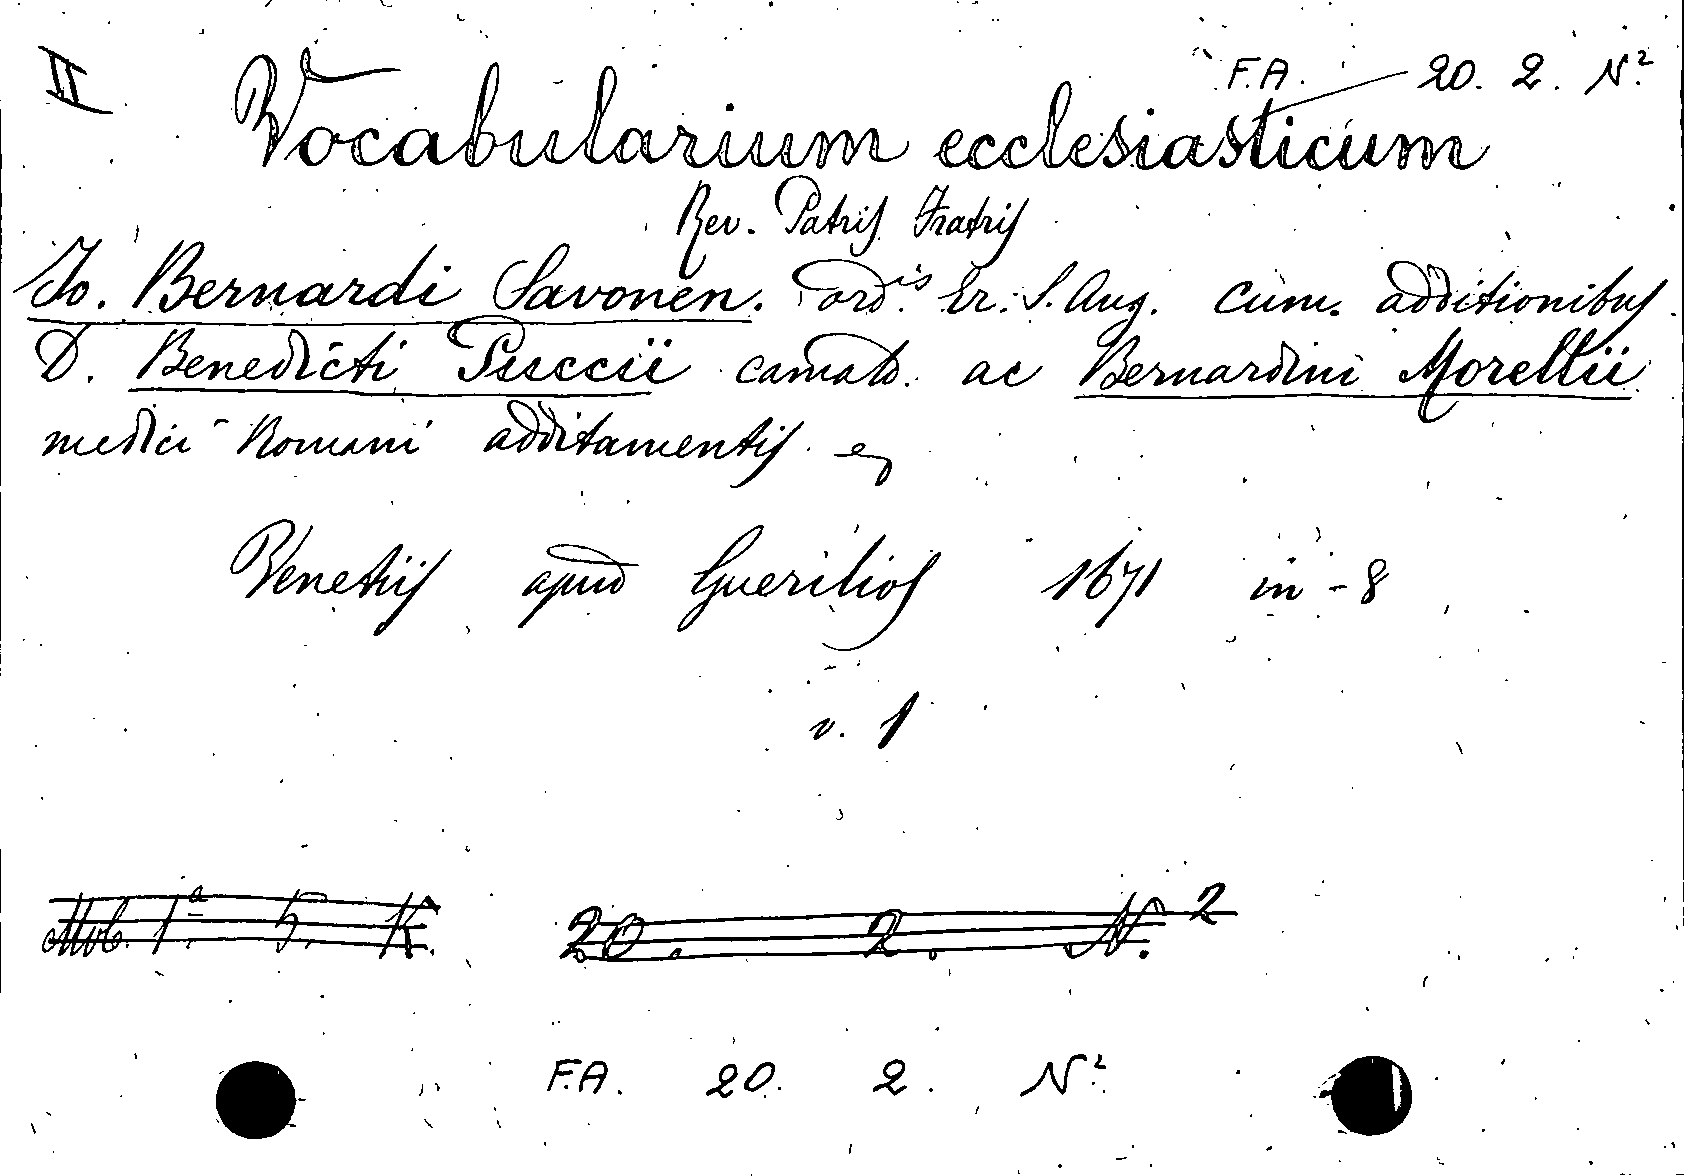 II
F.A. 20. 2. N.²
Vocabularium ecclesiasticum
Rev. Patris Fratris
Jo. Bernardi Savonen. ord.is Er. S. Aug. cum. additionibus
D. Benedicti Puccii camald. ac Bernardini Morellii
medici Romani additamentis
Venetiis apud Guerilios 1671 in-8
v. 1
Mob. 1.a 5. K. 20. 2. N. 2
F.A. 20. 2. N.²